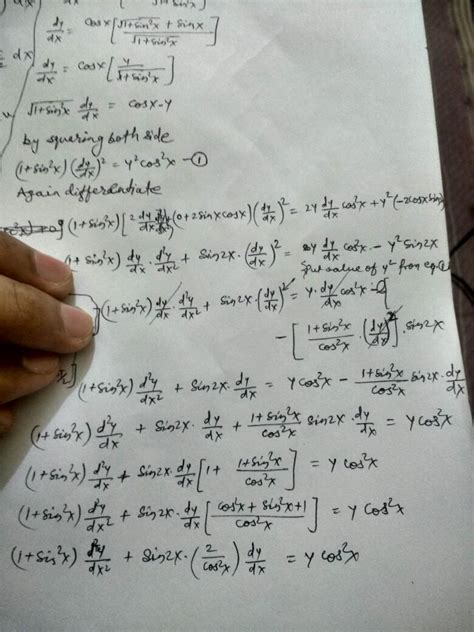 dy/dx = cosx [ (√(1+sin²x) + sinx) / √(1+sin²x) ]
dx
dy/dx = cosx [ y / √(1+sin²x) ]
√(1+sin²x) dy/dx = cosx-y
by squering both side
(1+sin²x) (dy/dx)² = y²cos²x - ①
Again differentiate
(1+sin²x) [2 dy/dx (0+2sinxcosx) (dy/dx)² = 2y dy/dx cos²x + y²(-2cosx
(1+sin²x) dy/dx · d²y/dx² + sin2x · (dy/dx)² = 2y dy/dx cos²x - y² sin2x
put value of y² from
(1+sin²x) dy/dx · d²y/dx² + sin2x · (dy/dx)² = y · dy/dx cos²x -
- [ (1+sin²x)/cos²x · (dy/dx)² ] · sin2x
(1+sin²x) d²y/dx² + sin2x · dy/dx = y cos²x - (1+sin²x)/cos²x sin2x · dy/dx
(1+sin²x) d²y/dx + sin2x · dy/dx + (1+sin²x)/cos²x sin2x · dy/dx = y cos²x
(1+sin²x) d²y/dx + sin2x · dy/dx [ 1 + (1+sin²x)/cos²x ] = y cos²x
(1+sin²x) d²y/dx² + sin2x · dy/dx [ (cos²x + sin²x+1)/cos²x ] = y cos²x
(1+sin²x) d²y/dx² + sin2x · (2/cos²x) dy/dx = y cos²x